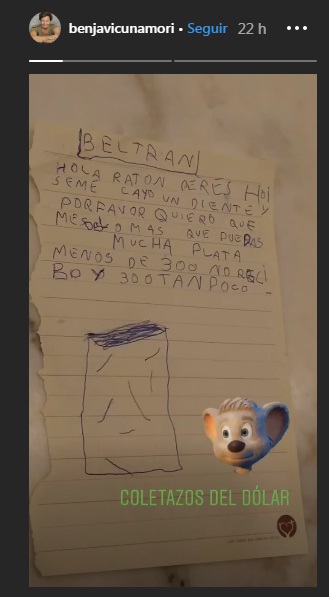 benjavicunamori • Seguir 22 h
BELTRAN
HOLA RATON PERES HOI
SEME CAYO UN DIENTE Y
PORFAVOR QUIERO QUE
MES LO MAS QUE PUEDAS
MUCHA PLATA
MENOS DE 300 NO RECI
BO Y 300 TAN POCO
COLETAZOS DEL DÓLAR